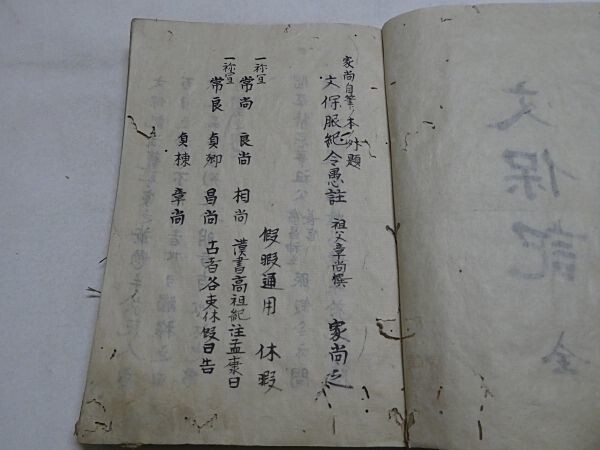 家尚自筆ノ本ノ外題
文保服紀令愚註 祖父章尚撰 家尚之
假暇通用 休暇
一祢宜 常尚 良尚 相尚 漢書高祖紀注孟康曰
一祢宜 常良 貞卿 昌尚 古者名吏休假曰告
貞棟 章尚
文保記 全